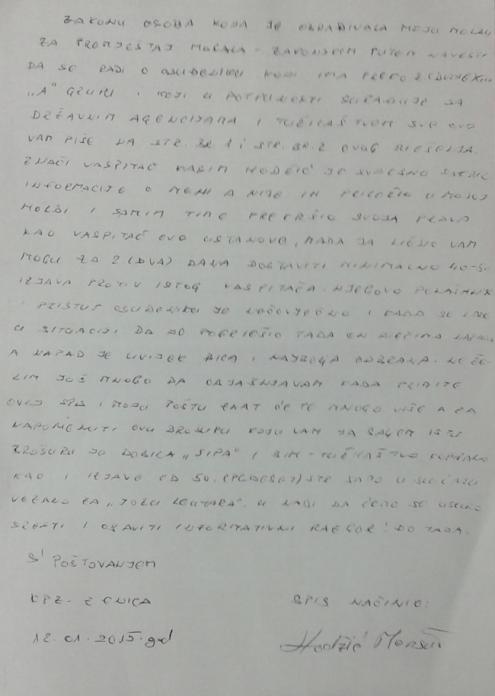 ZAKONU OSOBA KOJA JE OBRAĐIVALA MOJU MOLBU
ZA PREMJEŠTAJ MORALA ZAKONSKIM PUTEM NAVESTI
DA SE RADI O OSUĐENIKU KOJI IMA PREKO 2 (DVIJE)
"A" GRUPI I KOJI U POTPUNOSTI SURAĐUJE SA
DRŽAVNIM AGENCIJAMA I TUŽILAŠTVOM SVE OVO
VAM PIŠE NA STR. BR. 1 I STR. BR. 2 OVOG RJEŠENJA.
ZNAČI VASPITAČ KASIM HODŽIĆ JE SVJESNO
INFORMACIJE O MENI A NIJE IH PRILOŽIO U MOJOJ
MOLBI I SAMIM TIME PREKRŠIO SVOJA PRAVA
KAO VASPITAČ OVE USTANOVE, MADA JA LIČNO VAM
MOGU ZA 2 (DVA) DANA DOSTAVITI MINIMALNO 40-50
IZJAVA PROTIV ISTOG VASPITAČA. NJEGOVO PONAŠANJE
I PRISTUP OSUĐENIKU JE NEČOVJEČNO I KADA SE
U SITUACIJI DA JE POGRIJEŠIO TADA ON
A NAPAD JE UVIJEK BILA I NAJBOLJA ODBRANA. NE ŽE-
LIM JOŠ MNOGO DA OBJAŠNJAVAM KADA PRIĐITE
OVAJ SPIS I MOJU POŠTU ZNAT ĆETE MNOGO VIŠE A
NAPOMENUTI OVU BROŠURU KOJU VAM JA ŠALJEM ISTU
BROŠURU JE DOBILA "SIPA" I BIH TUŽILAŠTVO
KAO I IZJAVE OD 50. (PEDESET) STR. SATO U SLUČAJU
VEZANO ZA U NADI DA ĆEMO SE USKORO
SRESTI I OBAVITI INFORMATIVNI RAZGOR! DO TADA.
S' POŠTOVANJEM
KPZ-ZENICA
SPIS NAČINIO:
12.01.2015.god
Hodžić